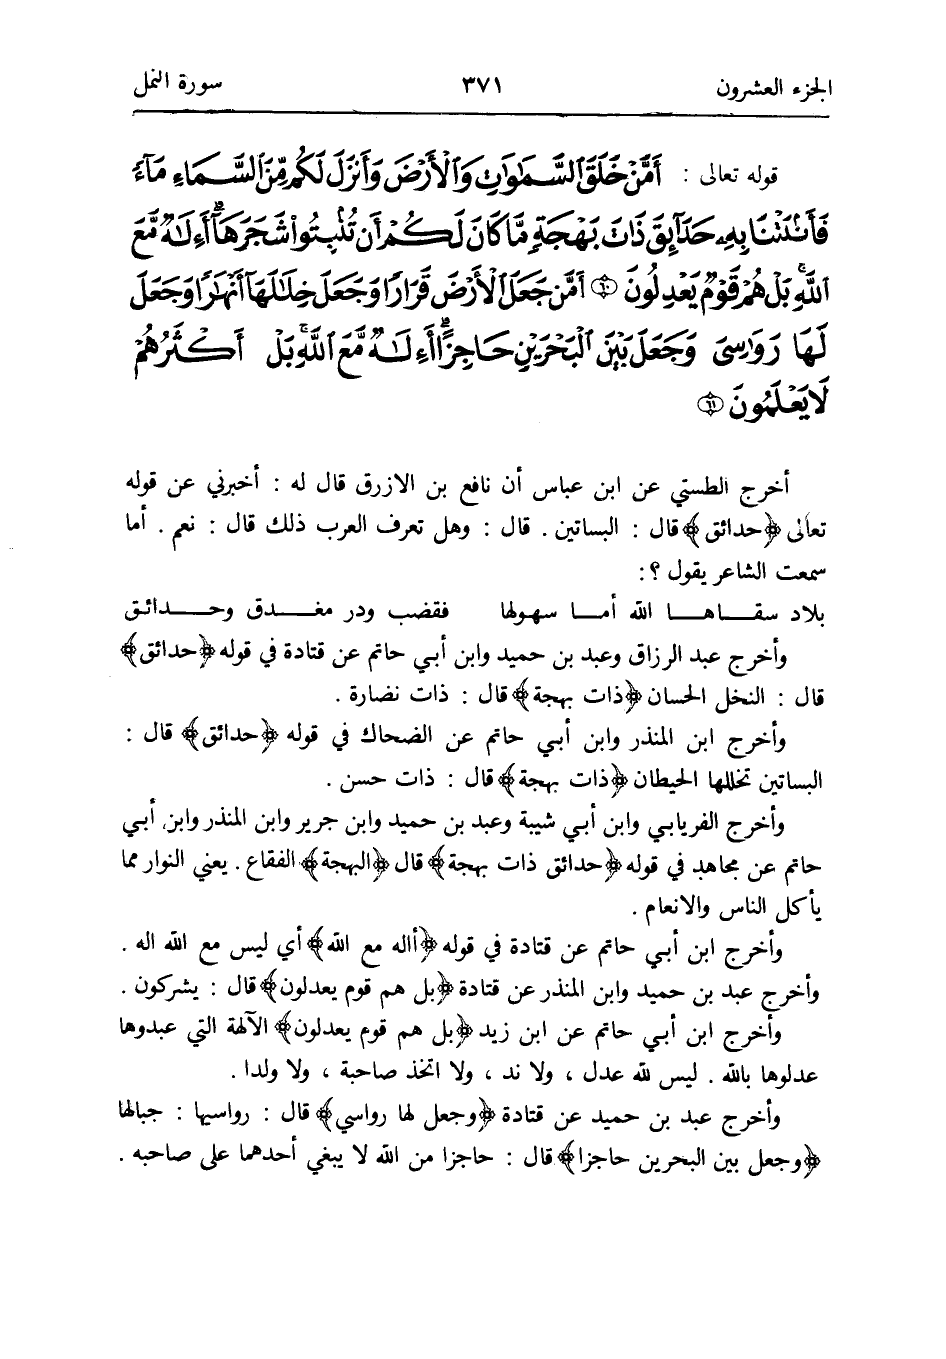 الجزء العشرون ٣٧١ سورة النمل
قوله تعالى : أَمَّنْ خَلَقَ ٱلسَّمَٰوَٰتِ وَٱلْأَرْضَ وَأَنزَلَ لَكُم مِّنَ ٱلسَّمَآءِ مَآءً
فَأَنۢبَتْنَا بِهِۦ حَدَآئِقَ ذَاتَ بَهْجَةٍ مَّا كَانَ لَكُمْ أَن تُنۢبِتُوا۟ شَجَرَهَآ ۗ أَءِلَٰهٌ مَّعَ
ٱللَّهِ ۚ بَلْ هُمْ قَوْمٌ يَعْدِلُونَ ﴿٦٠﴾ أَمَّن جَعَلَ ٱلْأَرْضَ قَرَارًا وَجَعَلَ خِلَٰلَهَآ أَنْهَٰرًا وَجَعَلَ
لَهَا رَوَٰسِىَ وَجَعَلَ بَيْنَ ٱلْبَحْرَيْنِ حَاجِزًا ۗ أَءِلَٰهٌ مَّعَ ٱللَّهِ ۚ بَلْ أَكْثَرُهُمْ
لَا يَعْلَمُونَ ﴿٦١﴾
أخرج الطستي عن ابن عباس أن نافع بن الازرق قال له : أخبرني عن قوله
تعالى ﴿حدائق﴾ قال : البساتين . قال : وهل تعرف العرب ذلك قال : نعم . أما
سمعت الشاعر يقول ؟ :
بلاد سقــاهــا الله أمــا سهولها فقضب ودر مغــدق وحــدائق
وأخرج عبد الرزاق وعبد بن حميد وابن أبي حاتم عن قتادة في قوله ﴿حدائق﴾
قال : النخل الحسان ﴿ذات بهجة﴾ قال : ذات نضارة .
وأخرج ابن المنذر وابن أبي حاتم عن الضحاك في قوله ﴿حدائق﴾ قال :
البساتين تخللها الحيطان ﴿ذات بهجة﴾ قال : ذات حسن .
وأخرج الفريابي وابن أبي شيبة وعبد بن حميد وابن جرير وابن المنذر وابن أبي
حاتم عن مجاهد في قوله ﴿حدائق ذات بهجة﴾ قال ﴿البهجة﴾ الفقاع . يعني النوار مما
يأكل الناس والانعام .
وأخرج ابن أبي حاتم عن قتادة في قوله ﴿أاله مع الله﴾ أي ليس مع الله اله .
وأخرج عبد بن حميد وابن المنذر عن قتادة ﴿بل هم قوم يعدلون﴾ قال : يشركون .
وأخرج ابن أبي حاتم عن ابن زيد ﴿بل هم قوم يعدلون﴾ الآلهة التي عبدوها
عدلوها بالله . ليس لله عدل ، ولا ند ، ولا اتخذ صاحبة ، ولا ولدا .
وأخرج عبد بن حميد عن قتادة ﴿وجعل لها رواسي﴾ قال : رواسيها : جبالها
﴿وجعل بين البحرين حاجزا﴾ قال : حاجزا من الله لا يبغي أحدهما على صاحبه .